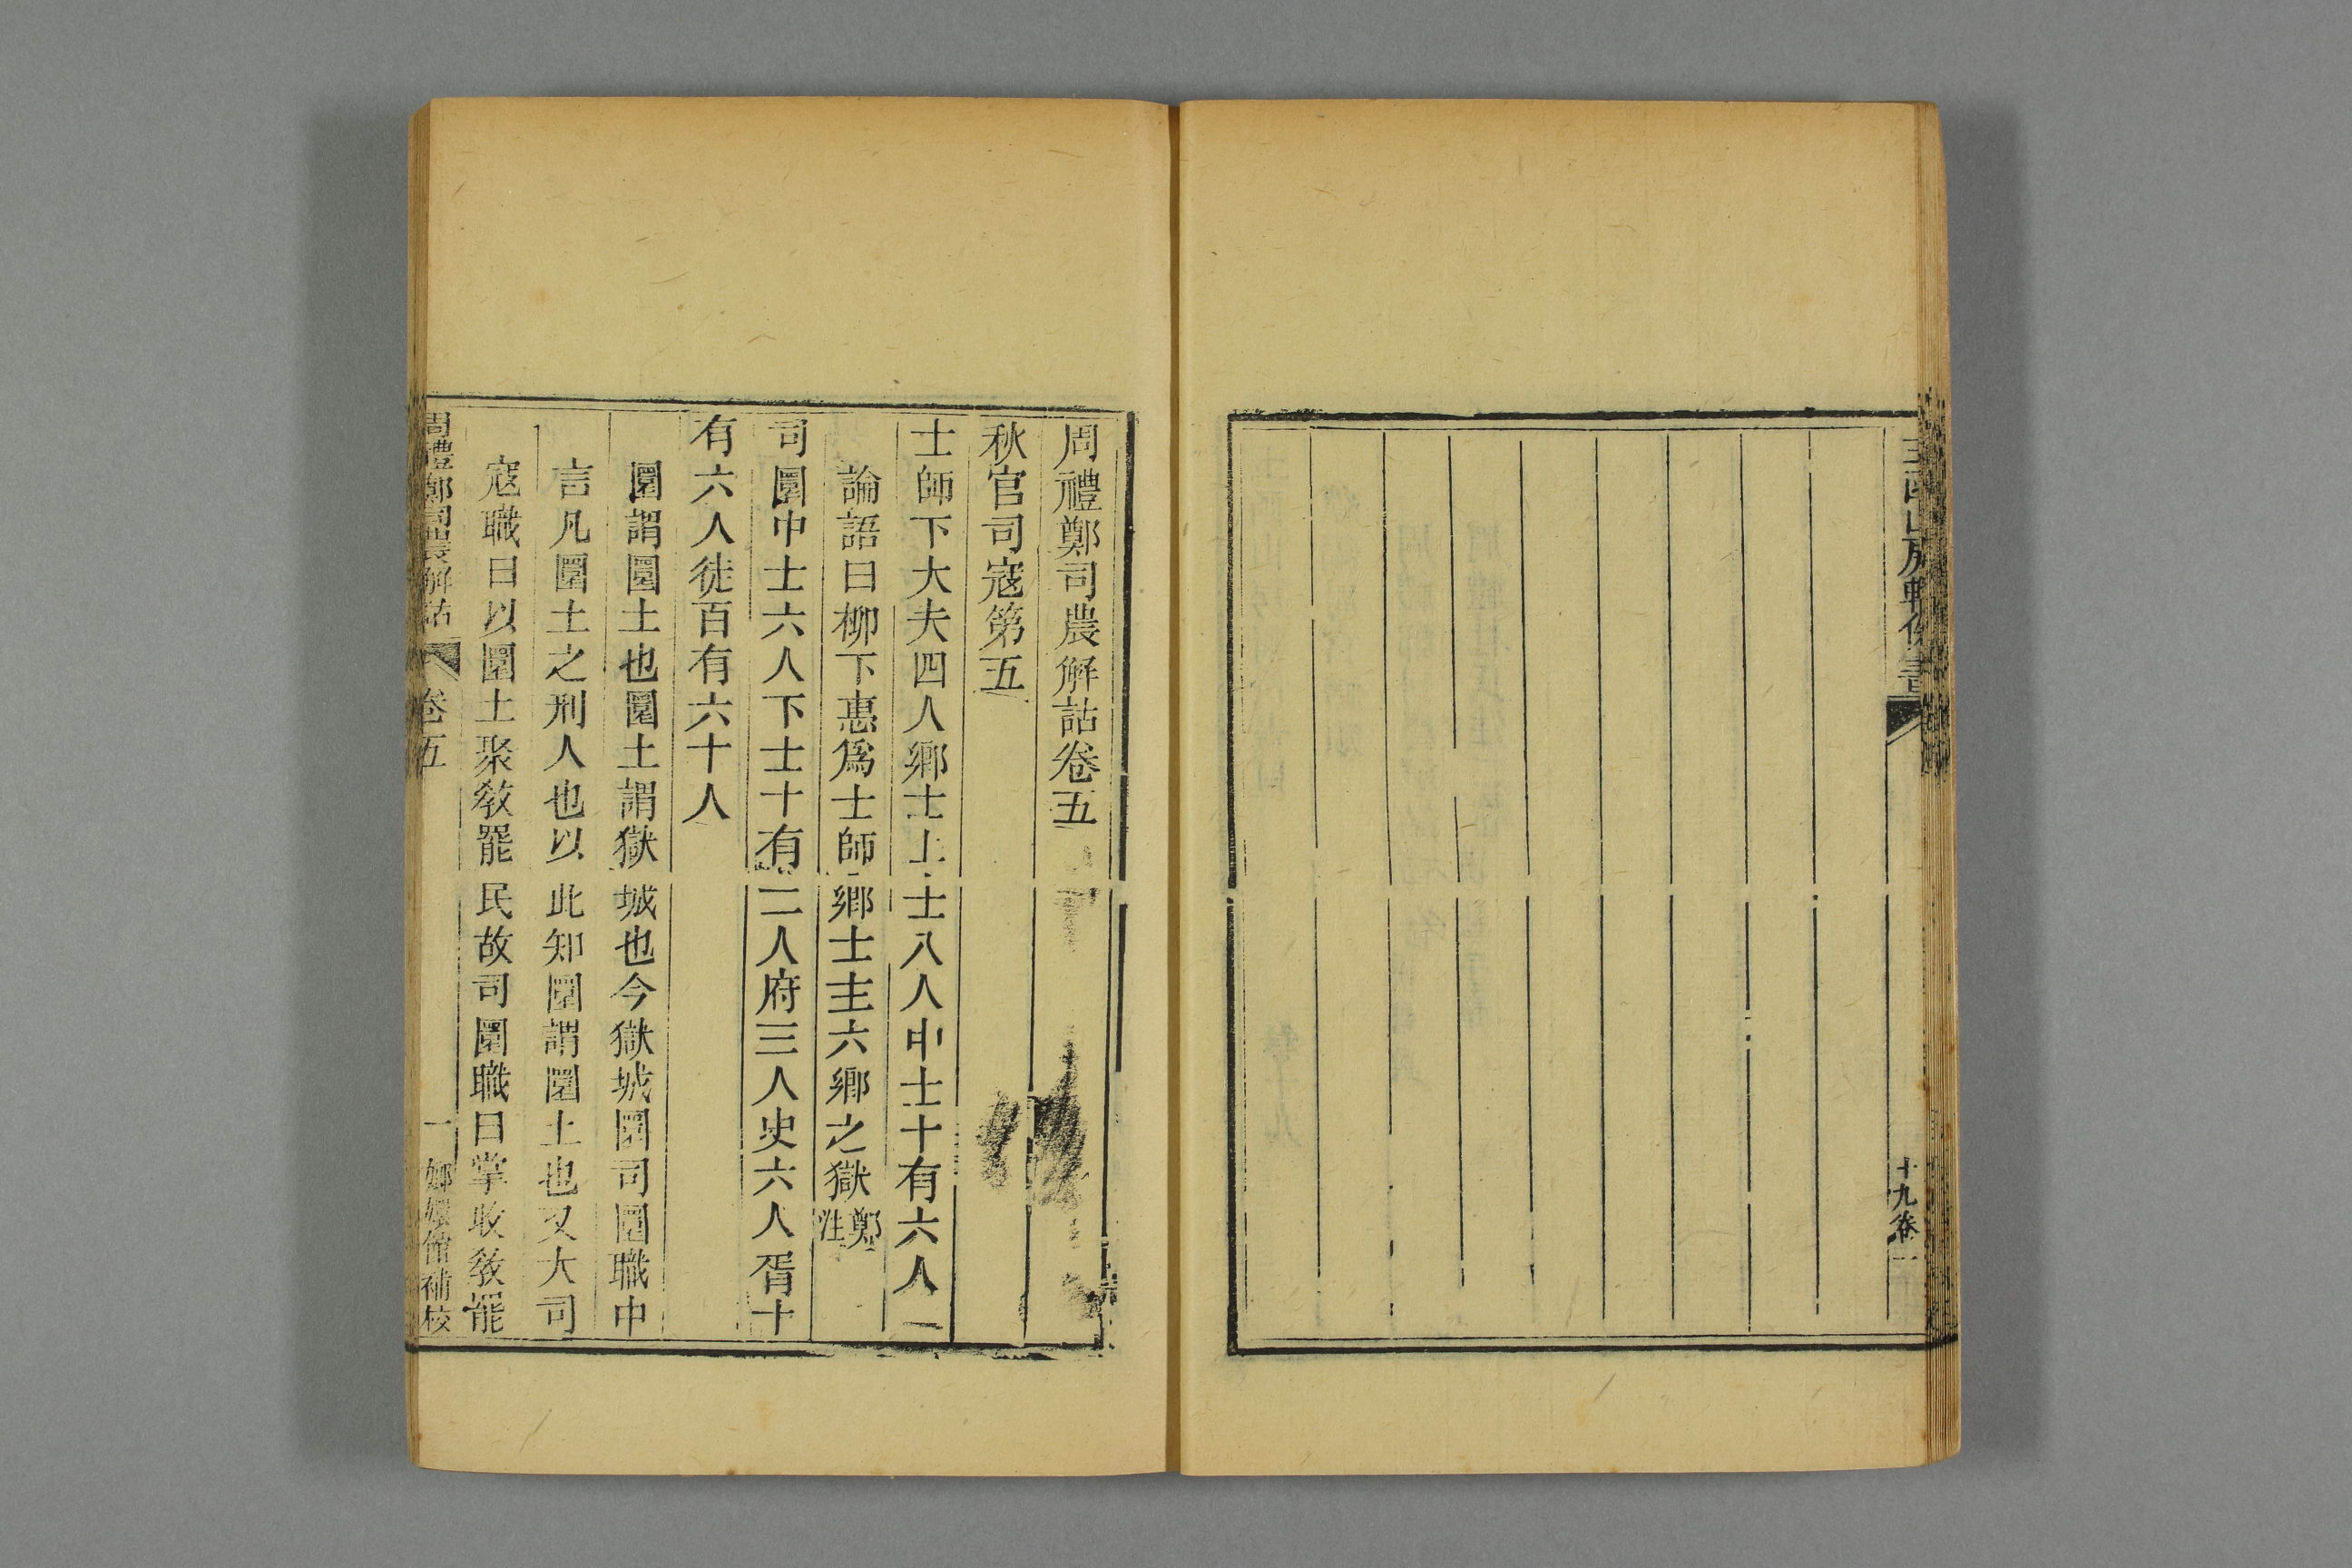 玉函山房輯佚書
十九卷一
周禮鄭司農解詁卷五
秋官司寇第五
士師下大夫四人鄉士上士八人中士十有六人
論語曰柳下惠爲士師鄉士主六鄉之獄鄭注
司圜中士六人下士十有二人府三人史六人胥十
有六人徒百有六十人
圜謂圜土也圜土謂獄城也今獄城圜司圜職中
言凡圜土之刑人也以此知圜謂圜土也又大司
寇職曰以圜土聚敎罷民故司圜職曰掌收敎罷
周禮鄭司農解詁 卷五 一 嫏嬛館補校